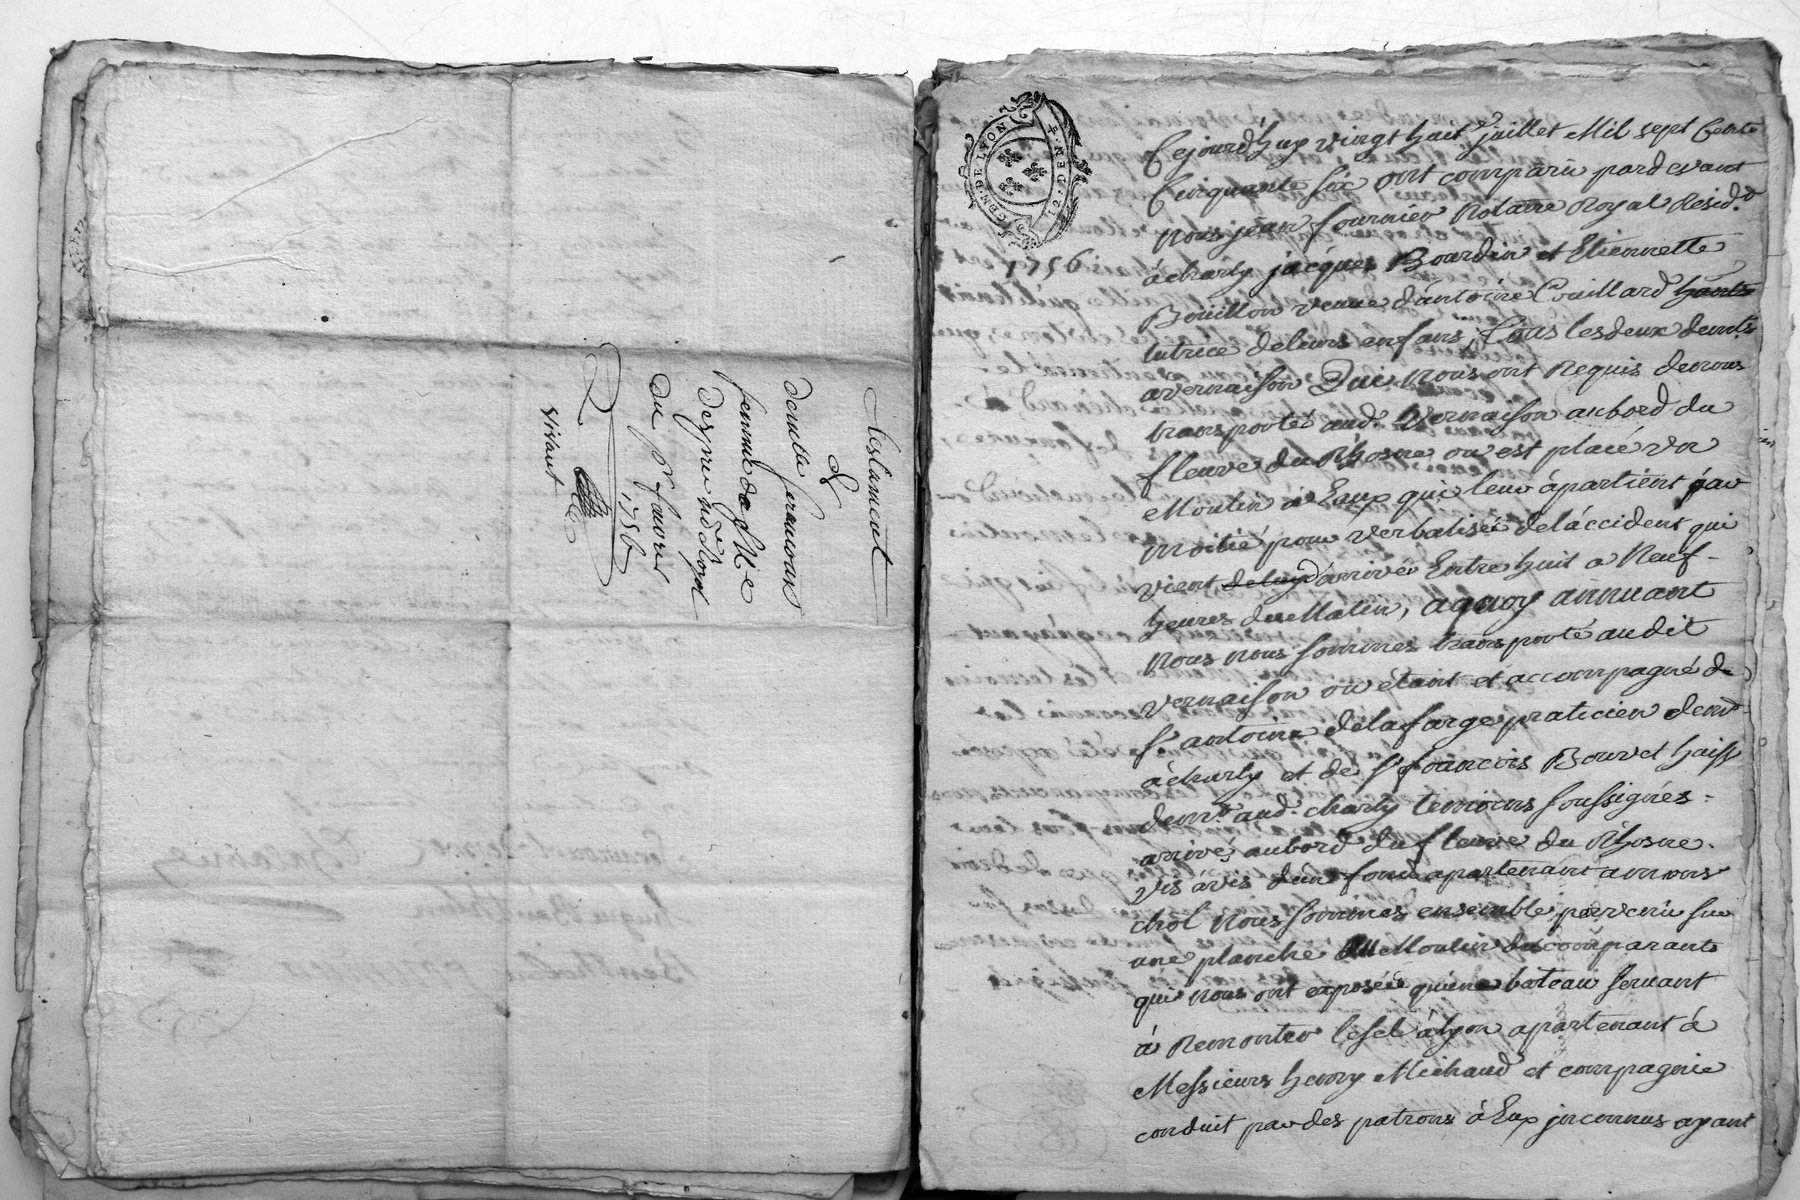 Testament
de
demlle francoise
femme de Me
Desgrre nore Royal
du 8e favrier
1756
vivant
GEN · DE LYON
12 DEN · 4
1756
Cejourd'huy vingt huit e juillet Mil sept Cents
Cinquante six ont comparu pardevant
Nous jean fournier Notaire Royal Resid.t
à charly jacques Bourdin et Etiennette
Bouillon veuve d'antoine Couillard
tutrice de leurs enfans, Tous les deux demts
a vernaison Qui Nous ont Requis de nous
transporter aud. Vernaison au bord du
fleuve du Rhosne ou est placé un
Moulin à Eaux qui leur àpartient par
moitié pour verbaliser de l'áccident qui
vient d'arriver Entre huit a Neuf
heures du Matin, a quoy annuant
Nous nous sommes transporté audit
vernaison ou étant et áccompagné de
sr. antoine delafarge praticien demt
à charly et de sr francois Bouvet huiss
demt. aud. charly temoins soussignés
arrivés au bord du fleuve du Rhosne
vis àvis d'un fond apartenant a mons
chol Nous sommes ensemble parvenu sur
une planche au Moulin du comparants
qui Nous ont exposée qu'une bateau servant
à Remonter le sel à lyon apartenant à
Messieurs henry Michaud et compagnie
conduit par des patrons à Eux jnconnus ayant